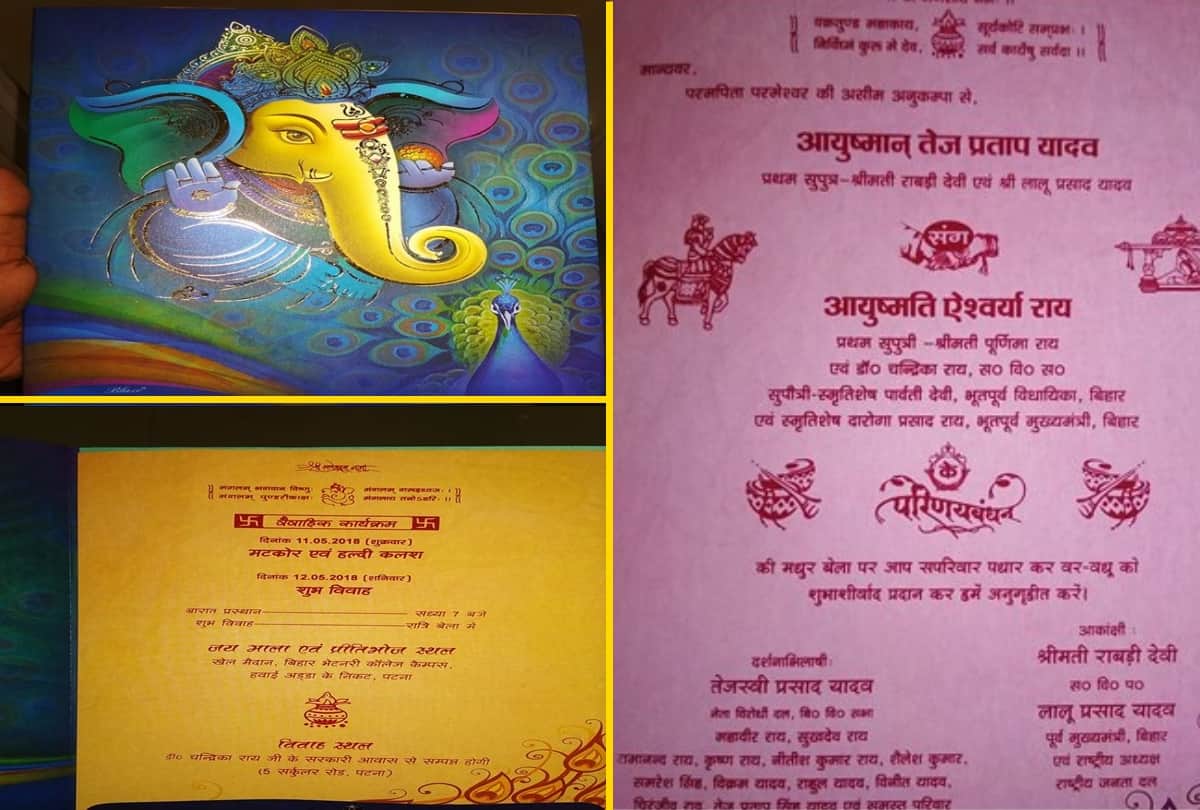 श्री गणेशाय नमः
मंगलम् भगवान विष्णुः मंगलम् गरूड़ध्वजः ।
मंगलम् पुण्डरीकाक्षः मंगलाय तनोऽहरिः ।।
वैवाहिक कार्यक्रम
दिनांक 11.05.2018 (शुक्रवार)
मटकोर एवं हल्दी कलश
दिनांक 12.05.2018 (शनिवार)
शुभ विवाह
बारात प्रस्थान संध्या 7 बजे
शुभ विवाह रात्रि बेला में
जय माला एवं प्रीतिभोज स्थल
खेल मैदान, बिहार भेटनरी कॉलेज कैम्पस,
हवाई अड्डा के निकट, पटना
विवाह स्थल
डा० चन्द्रिका राय जी के सरकारी आवास से सम्पन्न होगी
(5 सर्कुलर रोड, पटना)
वक्रतुण्ड महाकाय, सूर्यकोटि समप्रभः ।
निर्विघ्नं कुरू मे देव, सर्व कार्येषु सर्वदा ।।
मान्यवर,
परमपिता परमेश्वर की असीम अनुकम्पा से,
आयुष्मान् तेज प्रताप यादव
प्रथम सुपुत्र-श्रीमती राबड़ी देवी एवं श्री लालू प्रसाद यादव
संग
आयुष्मति ऐश्वर्या राय
प्रथम सुपुत्री -श्रीमती पूर्णिमा राय
एवं डॉ० चन्द्रिका राय, स० वि० स०
सुपौत्री-स्मृतिशेष पार्वती देवी, भूतपूर्व विधायिका, बिहार
एवं स्मृतिशेष दारोगा प्रसाद राय, भूतपूर्व मुख्यमंत्री, बिहार
के
परिणयबंधन
की मधुर बेला पर आप सपरिवार पधार कर वर-वधू को
शुभाशीर्वाद प्रदान कर हमें अनुगृहीत करें।
दर्शनाभिलाषी:
तेजस्वी प्रसाद यादव
नेता विरोधी दल, बि० वि० सभा
महावीर राय, सुखदेव राय
रामानन्द राय, कृष्ण राय, नीतीश कुमार राय, शैलेश कुमार,
समरेश सिंह, विक्रम यादव, राहुल यादव, विनीत यादव,
चिरंजीव राव, तेज प्रताप सिंह यादव एवं समस्त परिवार
आकांक्षी :
श्रीमती राबड़ी देवी
स० वि० प०
लालू प्रसाद यादव
पूर्व मुख्यमंत्री, बिहार
एवं राष्ट्रीय अध्यक्ष
राष्ट्रीय जनता दल